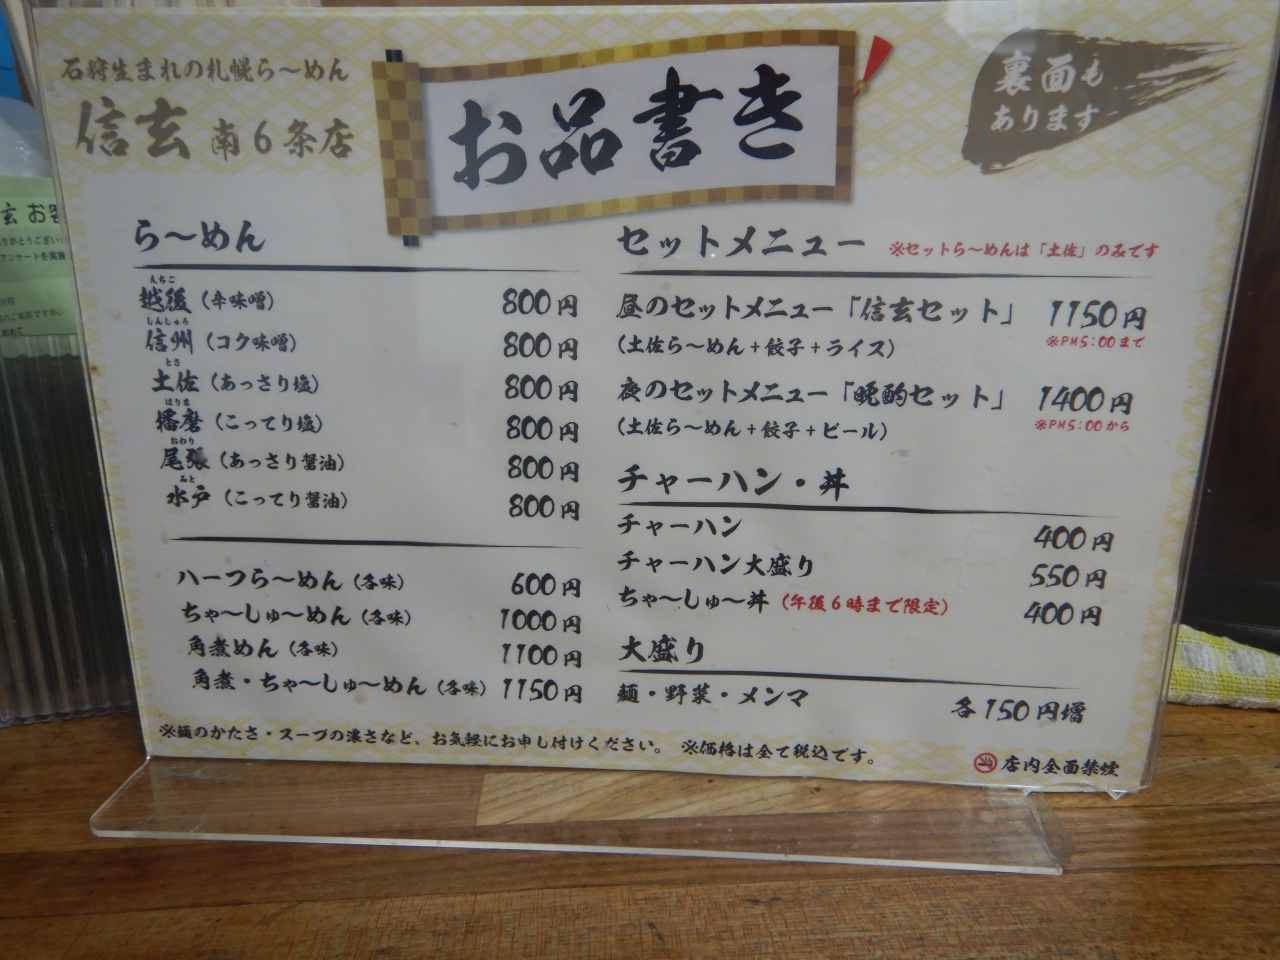 石狩生まれの札幌ら〜めん
信玄 南6条店
お品書き
裏面も
あります
ら〜めん
えちご
越後（辛味噌） 800円
しんしゅう
信州（コク味噌） 800円
とさ
土佐（あっさり塩） 800円
はりま
播磨（こってり塩） 800円
おわり
尾張（あっさり醤油） 800円
みと
水戸（こってり醤油） 800円
ハーフら〜めん（各味） 600円
ちゃ〜しゅ〜めん（各味） 1000円
角煮めん（各味） 1100円
角煮・ちゃ〜しゅ〜めん（各味） 1150円
セットメニュー ※セットら〜めんは「土佐」のみです
昼のセットメニュー「信玄セット」 1150円
（土佐ら〜めん+餃子+ライス） ※PM5:00まで
夜のセットメニュー「晩酌セット」 1400円
（土佐ら〜めん+餃子+ビール） ※PM5:00から
チャーハン・丼
チャーハン 400円
チャーハン大盛り 550円
ちゃ〜しゅ〜丼（午後6時まで限定） 400円
大盛り
麺・野菜・メンマ 各150円増
※麺のかたさ・スープの濃さなど、お気軽にお申し付けください。 ※価格は全て税込です。
店内全面禁煙
アンケートを実施